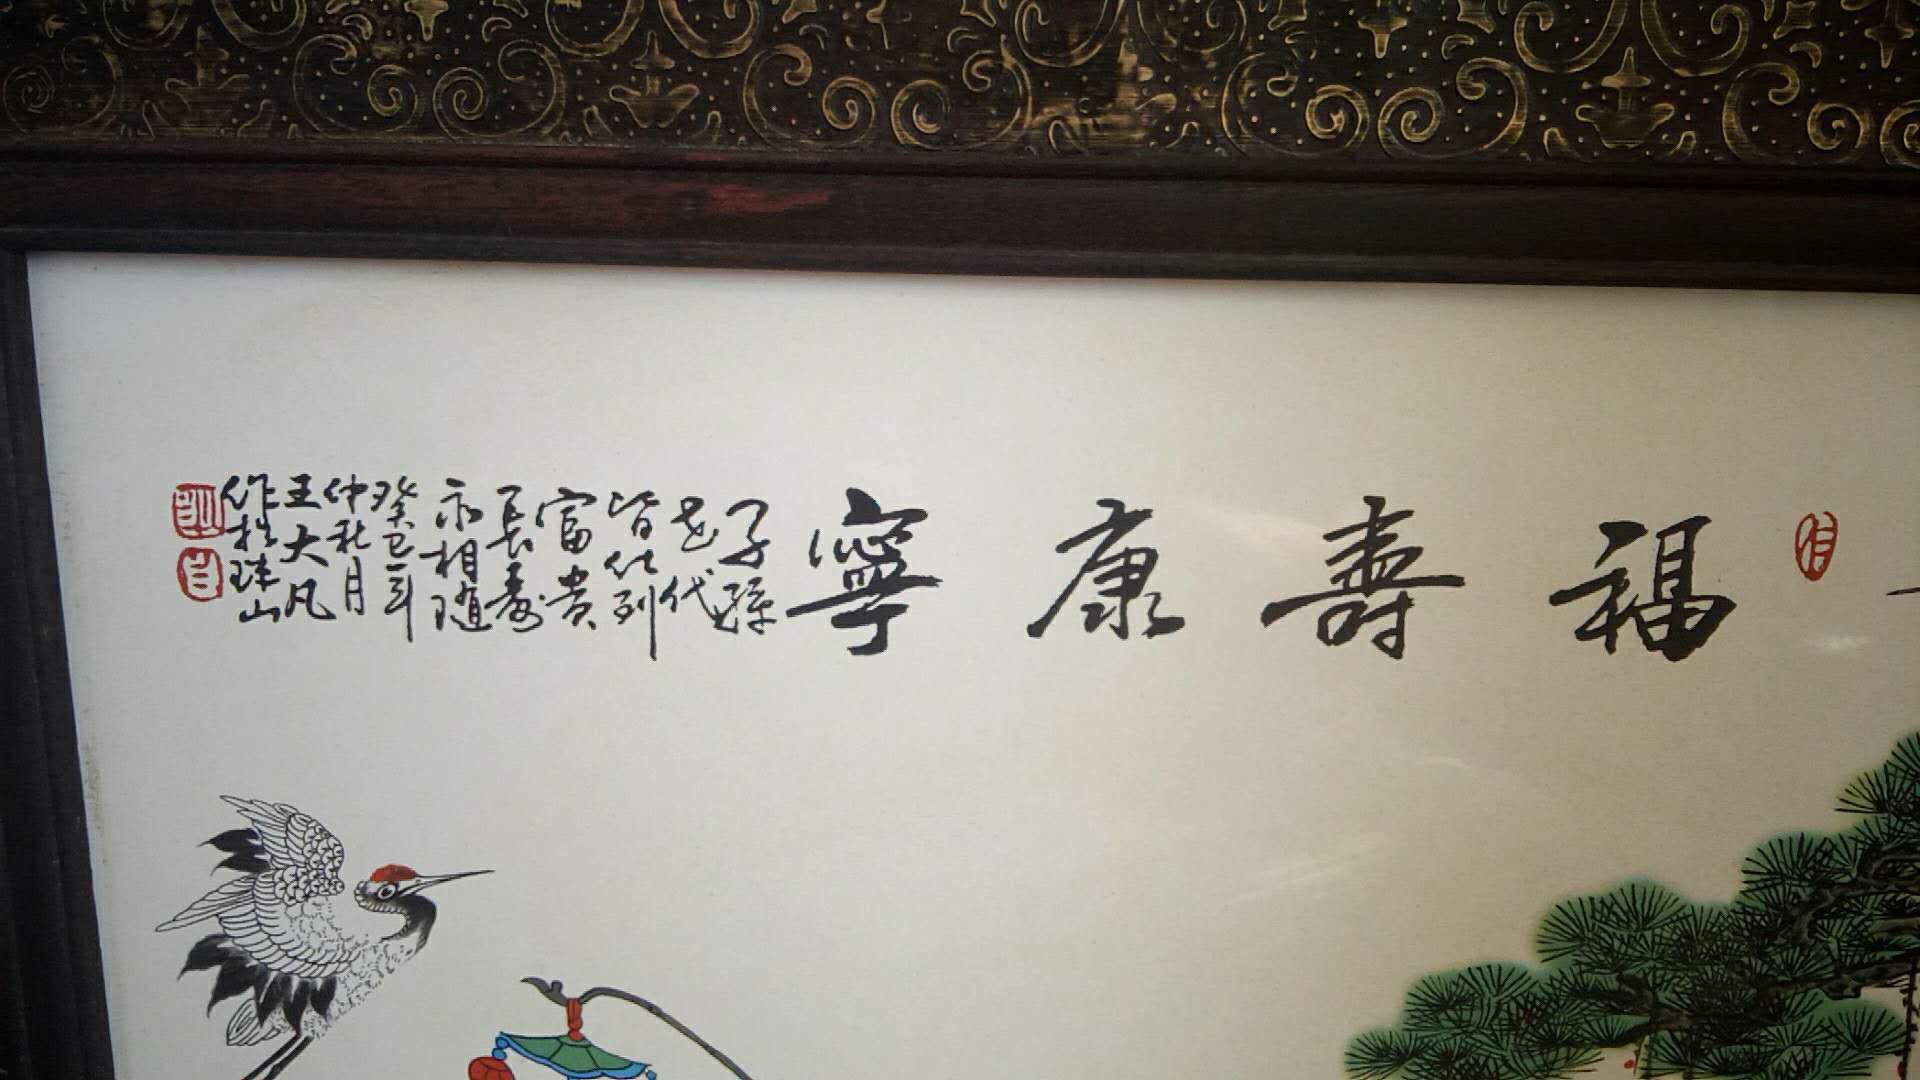 福壽康寧
子孫
世代
皆仕列
富貴
長壽
永相隨
癸巳年
仲秋月
王大凡
作於珠山